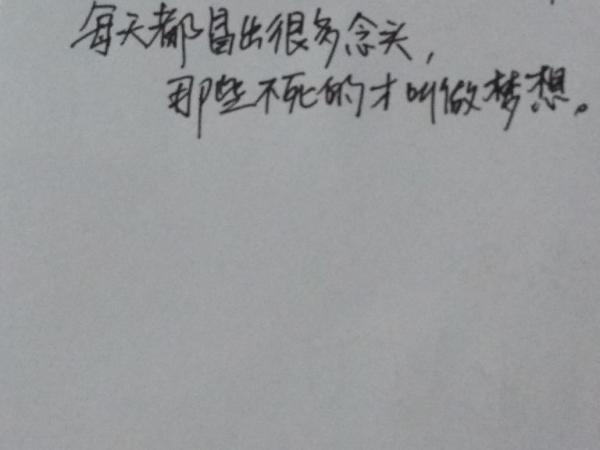 每天都冒出很多念头，
那些不死的才叫做梦想。